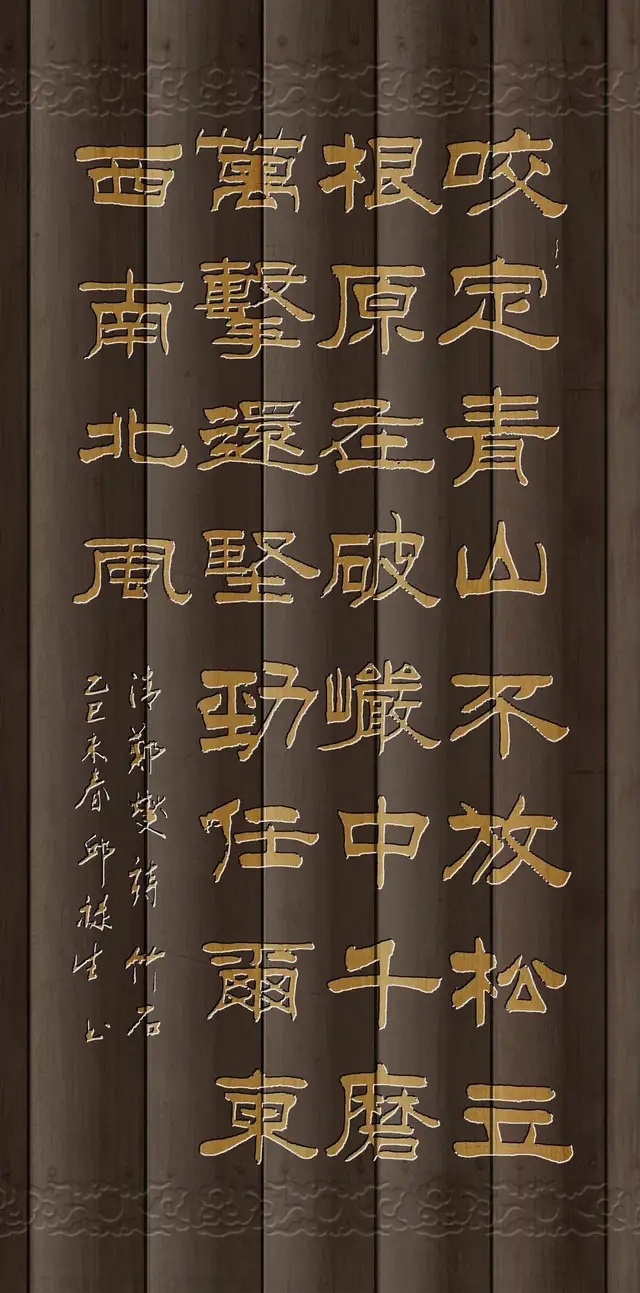 咬定青山不放松立
根原在破巗中千磨
萬擊還堅勁任爾東
西南北風
清鄭燮詩竹石
乙巳末春邱祿生书